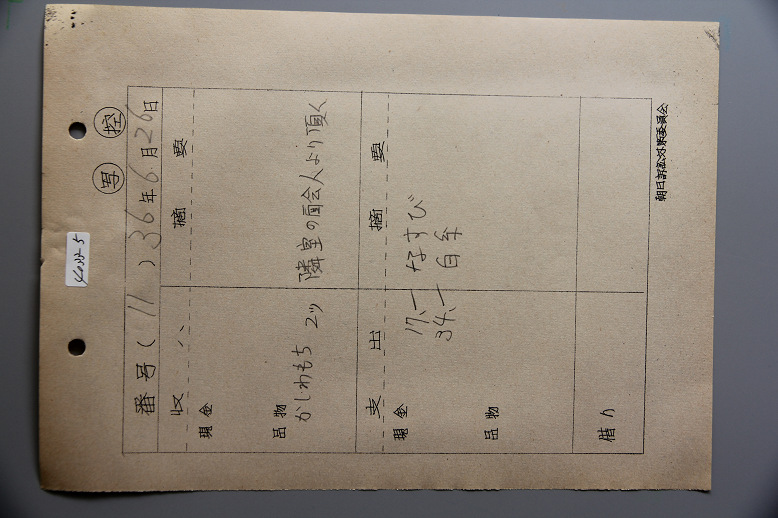 写 控
番号(11) 36年6月26日
収入 摘要
現金
品物
かしわもち 2ツ 隣室の面会人より頂く
支出 摘要
現金
17、― なすび
34、― 白糸
品物
借り
朝日訴訟対策委員会